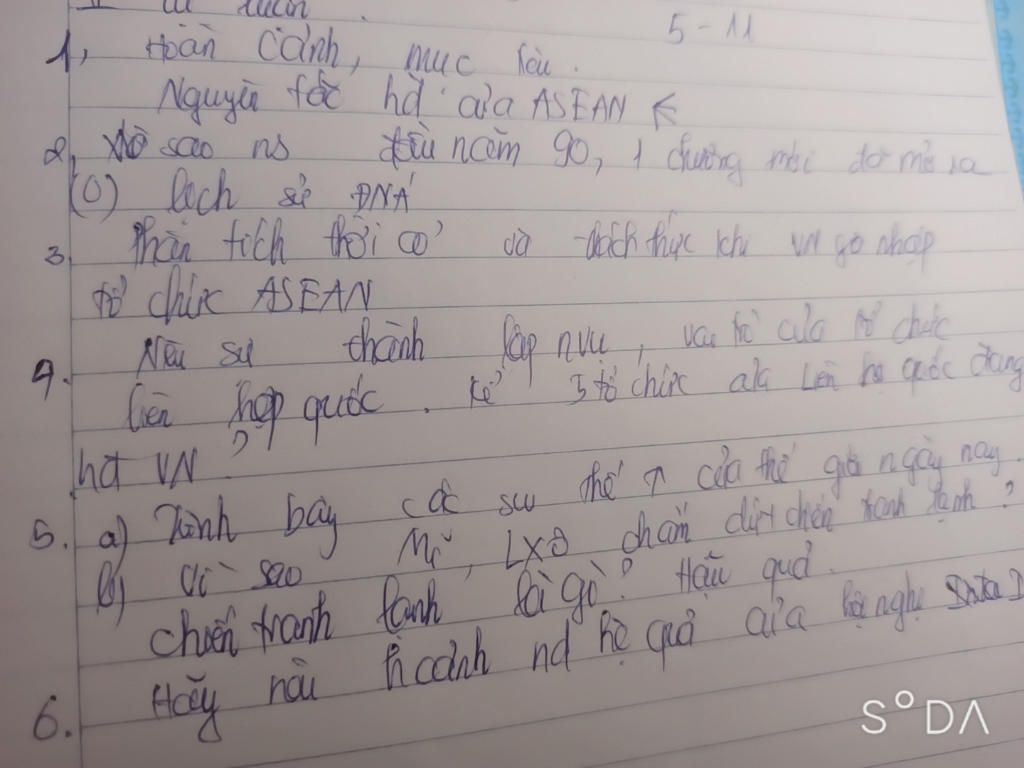 II tự luận.
5 - 11
1, Hoàn cảnh, mục tiêu.
Nguyên tắc hđ của ASEAN
2, sao ns đầu năm 90, 1 chương mới đc mở ra
(0) lịch sử ĐNÁ
3. Phân tích thời cơ và thách thức khi VN gia nhập
tổ chức ASEAN
4. Nêu sự thành lập nvu, vai trò của tổ chức
liên hợp quốc. kể 5 tổ chức của Liên hợp quốc đang
hđ VN ?
5. a) Trình bày các xu thế ↑ của thế giới ngày nay.
b) Vì sao Mĩ, LXô chấm dứt chiến tranh lạnh?
chiến tranh lạnh là gì? Hậu quả.
6. Hãy nêu h cảnh nd hệ quả của hội nghị
SODA